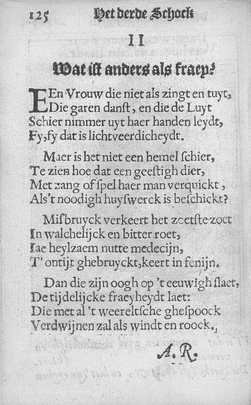 125 Het derde Schock
II
Wat ist anders als fraey?
EEn Vrouw die niet als zingt en tuyt,
Die garen danst, en die de Luyt
Schier nimmer uyt haer handen leydt,
Fy, fy dat is lichtveerdicheydt.
Maer is het niet een hemel schier,
Te zien hoe dat een geestigh dier,
Met zang of spel haer man verquickt,
Als't noodigh huyswerck is beschickt?
Misbruyck verkeert het zoetste zoet
In walchelijck en bitter roet,
Iae heylzaem nutte medecijn,
T'ontijt ghebruyckt, keert in fenijn.
Dan die zijn oogh op 't eeuwigh slaet,
De tijdelijcke fraeyheydt laet:
Die met al 't weereltsche ghespoock
Verdwijnen zal als windt en roock.
A. R.